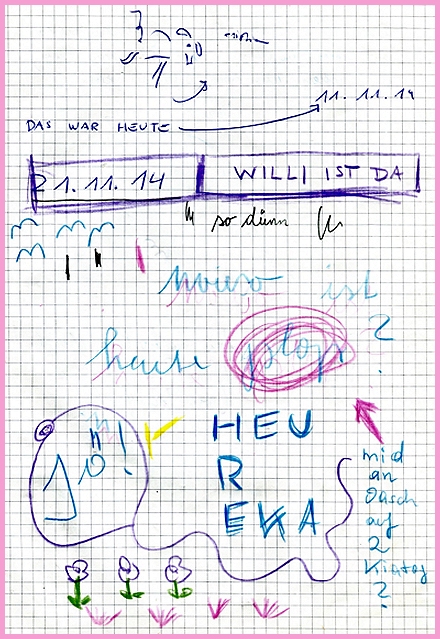 11. 11. 14
DAS WAR HEUTE
21. 11. 14
WILLI IST DA
so dünn
wieso ist
heute
?
HEU
R
EKA
mid
an
Oasch
auf
2
?